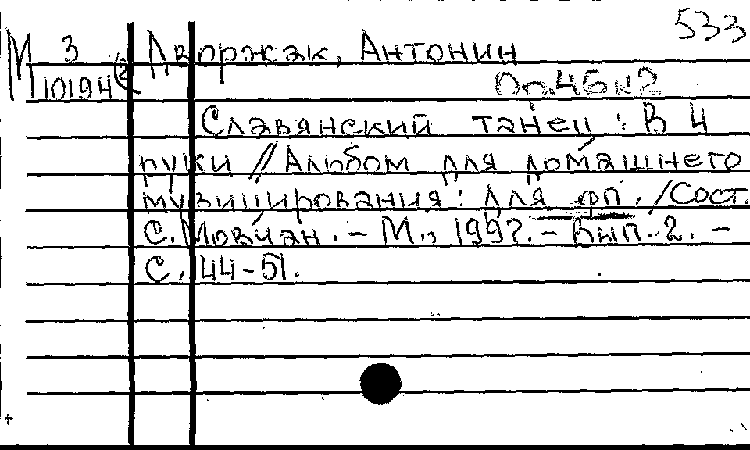 533
М 3
10194
Дворжак, Антонин
Оп.46 н2
Славянский танец : В 4
руки // Альбом для домашнего
музицирования : Для фп. / Сост.
С. Мовчан. - М., 1992. - Вып. 2. -
С. 44-51.